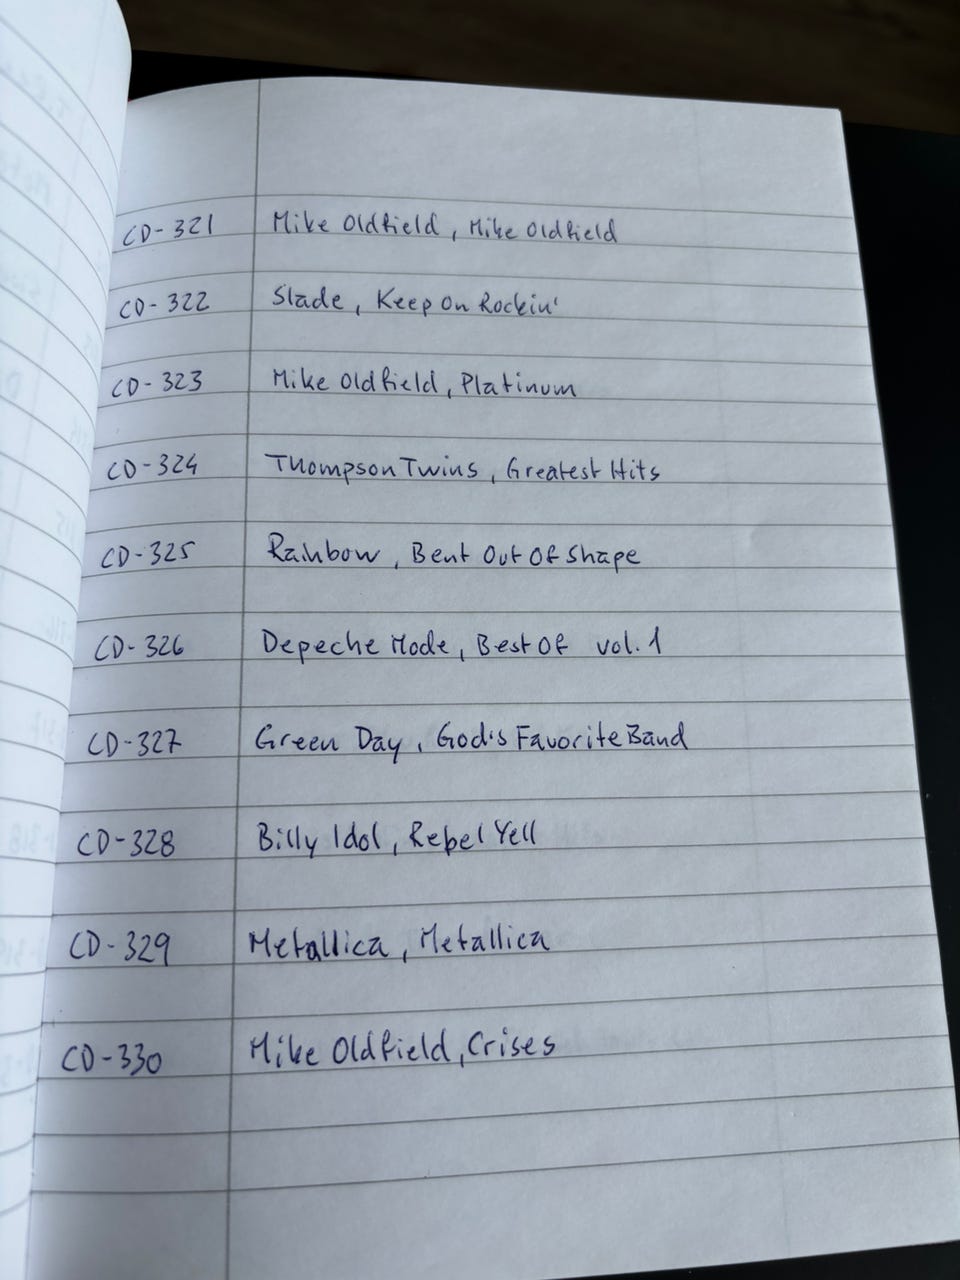 CD-321 Mike Oldfield, Mike Oldfield
CD-322 Slade, Keep On Rockin'
CD-323 Mike Oldfield, Platinum
CD-324 Thompson Twins, Greatest Hits
CD-325 Rainbow, Bent Out Of Shape
CD-326 Depeche Mode, Best Of vol. 1
CD-327 Green Day, God's Favorite Band
CD-328 Billy Idol, Rebel Yell
CD-329 Metallica, Metallica
CD-330 Mike Oldfield, Crises